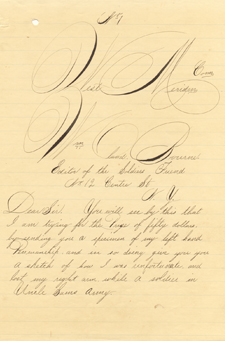 West Meriden Conn
Wm
Editor of the Soldiers Friend
No 12 Centre St
N Y
Dear Sir. You will see by this that
I am trying for the of fifty dollars
by sending you a specimen of my left hand
Penmanship and in so doing give you
a sketch of how I was unfortunate and
lost my right arm while a soldier in
Uncle Sams Army.